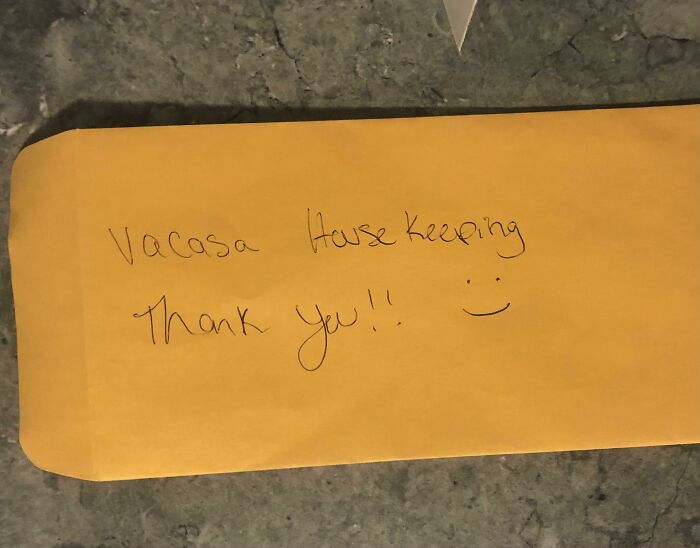 Vacasa House Keeping
Thank you!! :)